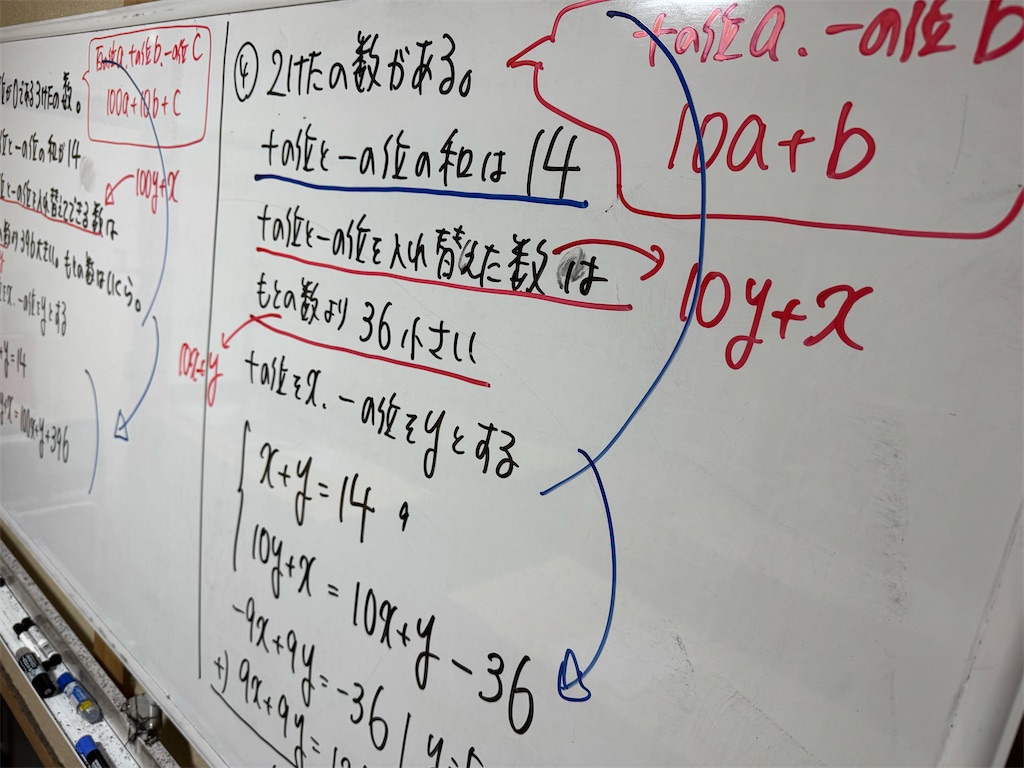 百の位a.十の位b.一の位C
100a+10b+C
である3けたの数。
位と一の位の和が14
100y+x
位と一の位を入れ替えてできる数は
の数より396大きい。もとの数はいくら。
位をx.一の位をyとする
+y=14
+x=100x+y+396
④ 2けたの数がある。
十の位と一の位の和は14
十の位と一の位を入れ替えた数は
もとの数より36小さい
10x+y
十の位をx.一の位をyとする
x+y=14
10y+x=10x+y-36
-9x+9y=-36
+) 9x+9y=
十の位a.一の位b
10a+b
10y+x